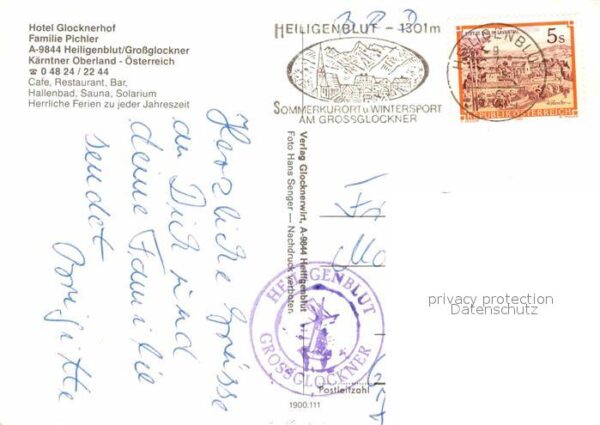 Hotel Glocknerhof
Familie Pichler
A-9844 Heiligenblut/Großglockner
Kärntner Oberland - Österreich
☎ 0 48 24 / 22 44
Cafe, Restaurant, Bar,
Hallenbad, Sauna, Solarium
Herrliche Ferien zu jeder Jahreszeit
HEILIGENBLUT - 1301m
SOMMERKURORT U WINTERSPORT
AM GROSSGLOCKNER
HEILIGENBLUT
5s
REPUBLIK ÖSTERREICH
Herzliche Grüsse
an Dich und
deine Familie
sendet
Brigitte
Verlag Glocknerwirt, A-9844 Heiligenblut
Foto Hans Senger — Nachdruck verboten
HEILIGENBLUT
GROSSGLOCKNER
privacy protection
Datenschutz
Postleitzahl
1900.111